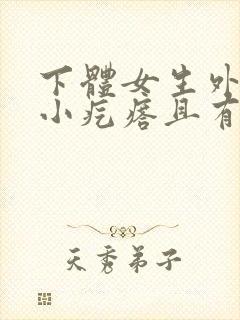 下體女生外
小疙瘩且有
天秀弟子